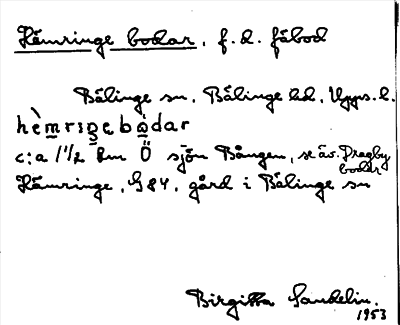 Hämringe bodar, f.d. fäbod
Bälinge sn, Bälinge hd, Upps. l.
hèmriŋebòdar
c:a 1 1/2 km Ö sjön Bången, se äv. Dragby
bodar
Hämringe, G 84, gård i Bälinge sn
Birgitta Sandelin.
1953